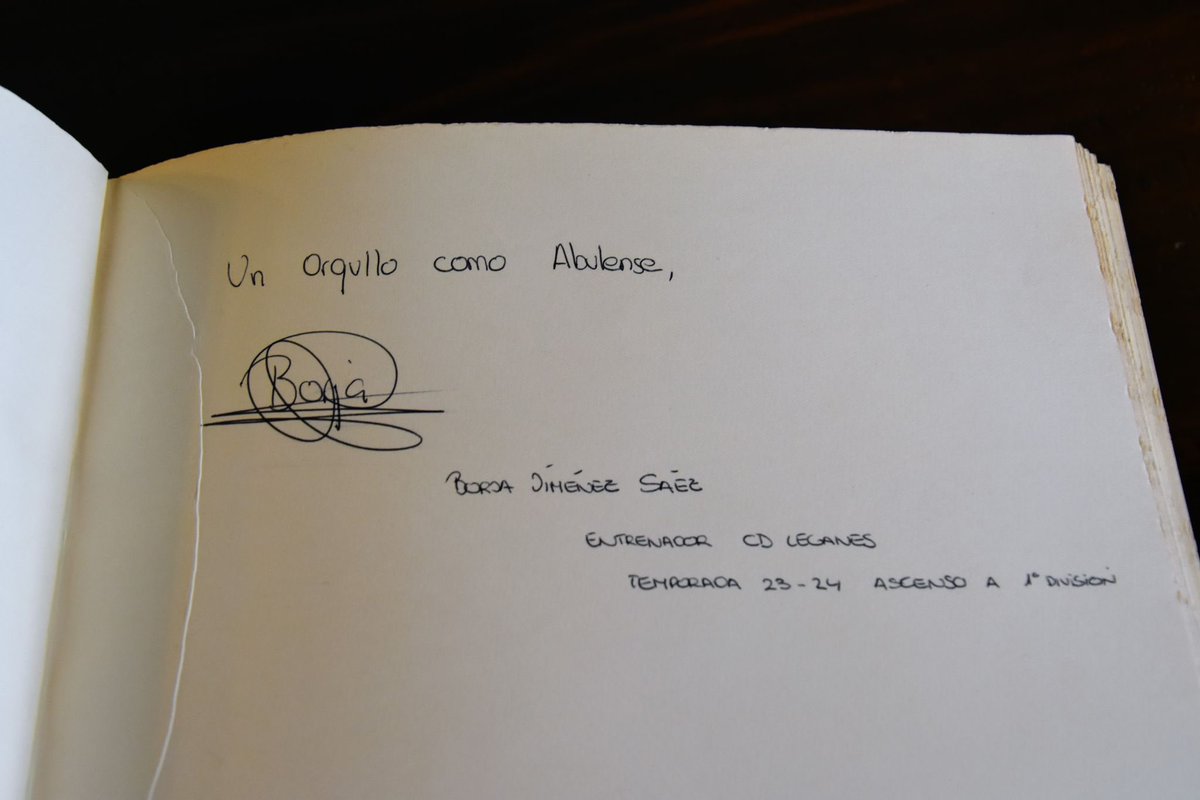 Un Orgullo como Abulense,
Borja
BORJA JIMÉNEZ SAÉZ
ENTRENADOR CD LEGANES
TEMPORADA 23-24 ASCENSO A 1ª DIVISIÓN